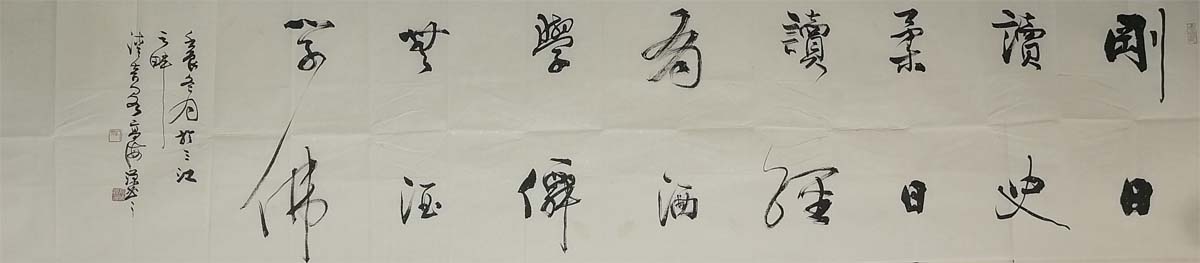 剛日
讀史
柔日
讀經
有酒
學僊
無酒
学佛
壬辰冬月於三江
之畔